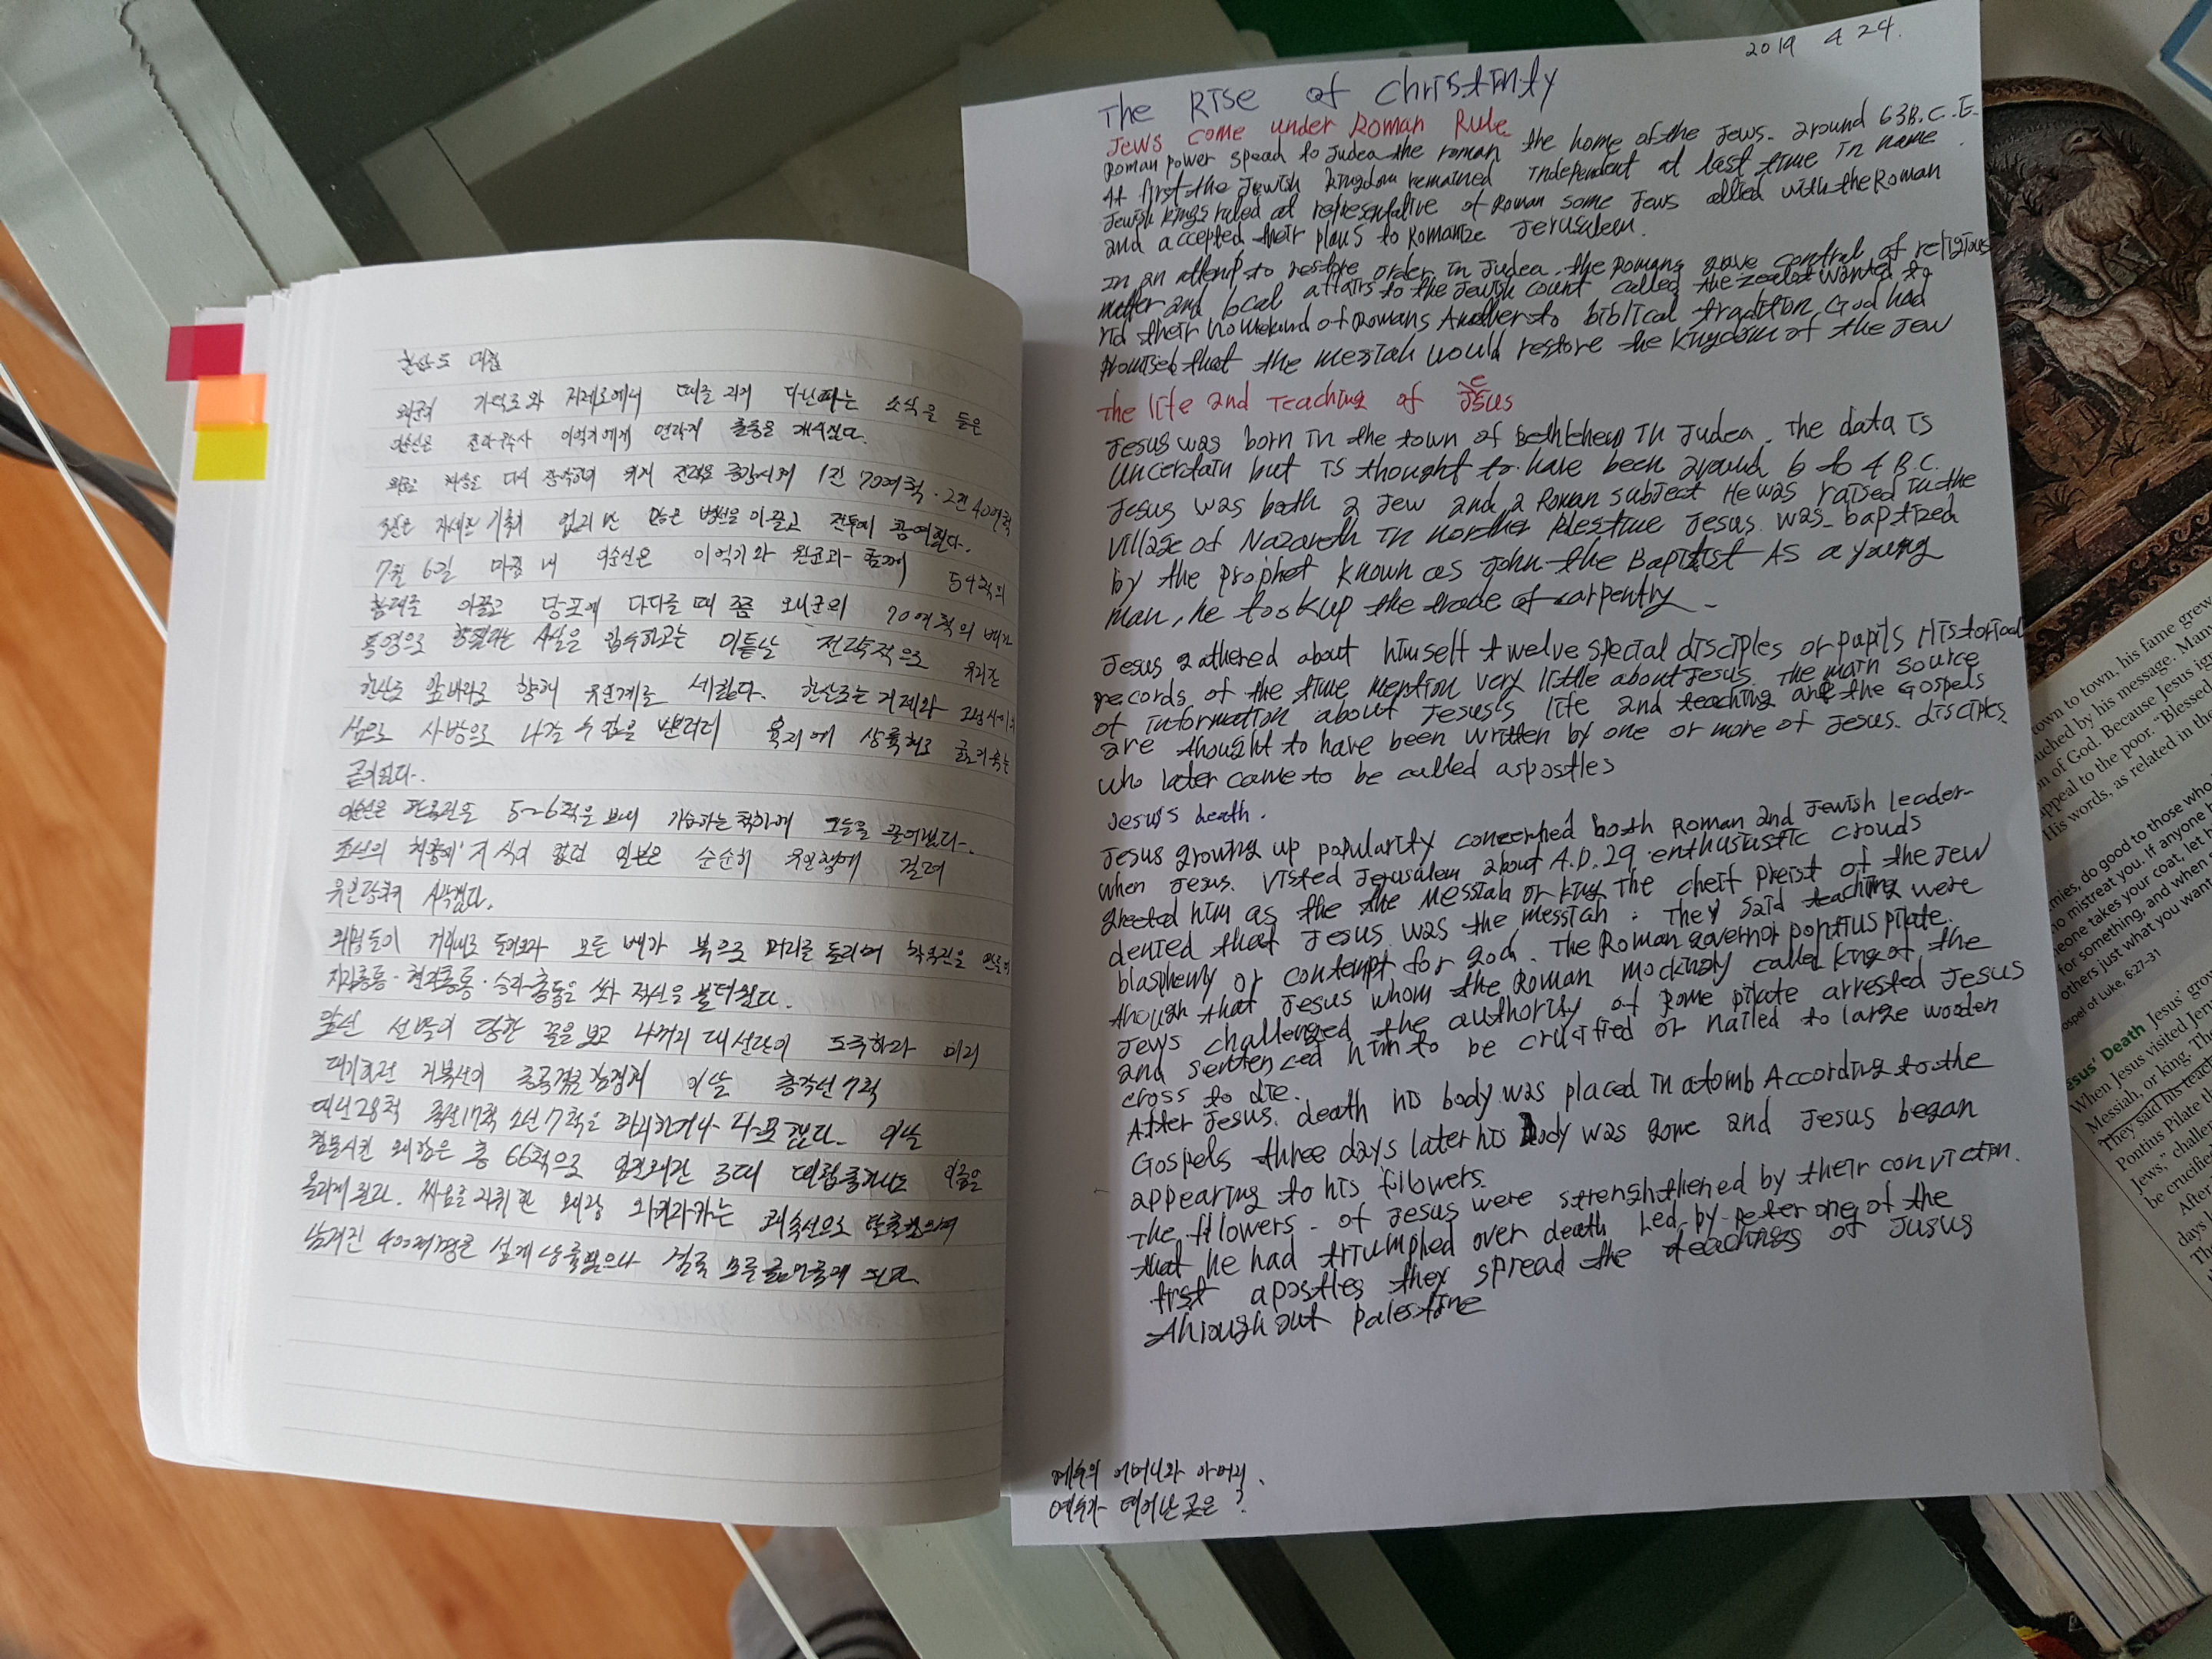 한산도 대첩
왜군이 가덕도와 거제도에서 떼를 지어 다닌다는 소식을 들은
이순신은 전라우수사 이억기에게 연락지 출동을 개시했다.
전력을 증강시켜 1진 70여척·2진 40여척
자세한 기록이 없지만 많은 병선을 이끌고 전투에 참여했다.
7월 6일 마침내 이순신은 이억기와 원균과 함께 54척의
함대를 이끌고 당포에 다다를 때 쯤 왜군의 70여척의 배가
통영으로 향했다는 사실을 입수하고는 이튿날 전략적으로 유리한
한산도 앞바다로 향해 유인계를 세웠다. 한산도는 거제와 고성사이의
섬으로 사방으로 나갈 수 없을 뿐더러 육지에 상륙해도 굶어죽는
곳이었다.
이순신은 판옥선을 5~6척을 보내 기습하는척하여 그들을 끌어냈다.
조선의 해양에 지식이 없던 일본은 순순히 유인책에 걸려
유인당하기 시작했다.
왜병들이 거제로 들어오자 모든 배가 북으로 머리를 돌리며 학익진을 만들어
지자총통·현자총통·승자총통을 쏴 적선을 불태웠다.
앞선 선봉이 당한 꼴을 보고 나머지 대선단이 도주하자 미리
대기하던 거북선이 총공격을 감행해 이날 층각선 7척
대선 28척 중선 17척 소선 7척을 파괴하거나 나포했다. 이날
침몰시킨 왜함은 총 66척으로 임진왜란 3대 대첩중 하나로 이름을
올리게 된다. 싸움을 지휘한 왜장 와키자카는 쾌속선으로 탈출했으며
남겨진 400여명은 섬에 상륙했으나 결국 모두 굶어죽게 된다.
2019 4 24.
The Rise of Christinty
Jews come under Roman Rule
Roman power spead to Judea the roman the home of the Jews. around 63B.C.E.
At first the Jewish kingdom remained independent at last time in name.
Jewish kings ruled at representative of Roman some Jews allied with the Roman
and accepted their plans to Romanize Jerusalem.
In an attemp to restore order in Judea. the Romans gave control of religious
matter and local affairs to the Jewish count called the zealot wanted to
rid their homeland of Romans to biblical tradition, God had
promised that the messiah would restore the Kingdom of the Jew
The life and Teaching of Jesus
Jesus was born in the town of Bethlehem in Judea. The data is
uncertain but is thought to have been around 6 to 4 B.C.
Jesus was both a Jew and a Roman subject He was raised in the
village of Nazareth in norther Palestine Jesus. was baptized
by the prophet known as John the Baptist As a young
man, he took up the trade of carpentry.
Jesus gathered about himself twelve special disciples or pupils Historical
records of the time mention very little about Jesus. The main source
of information about Jesus's life and teaching are the Gospels
are thought to have been written by one or more of Jesus. disciples.
who later came to be called aspostles
Jesus's death.
Jesus growing up popularity concerned both Roman and Jewish leader-
when Jesus. visted Jerusalem about A.D. 29 enthustastic crouds
greeted him as the the Messiah or king The cheif Preist of the Jew
denied that Jesus was the messiah. They said teaching were
blasphemy or contempt for god. The Roman governor pontius pilate.
though that Jesus whom the Roman mockingly called king of the
Jews challenged the authority of Rome pilate arrested Jesus
and sentenced him to be crucified or nailed to large wooden
cross to die.
After Jesus. death his body was placed in atomb According to the
Gospels three days later his body was gone and Jesus began
appearing to his fillowers.
The fillowers - of Jesus were strenghthened by their conviction.
that he had triumphed over death Led by Peter one of the
first apostles they spread the teachings of Jusus
through out Palestine
예수의 어머니와 아버지.
예수가 태어난 곳은?
town to town, his fame grew
touched by his message. Many
on of God. Because Jesus ign
appeal to the poor. "Blessed
His words, as related in the
mies, do good to those who
ho mistreat you. If anyone h
meone takes your coat, let h
for something, and when
others just what you want
ospel of Luke, 6:27-31
esus' Death Jesus' grow
When Jesus visited Jer
Messiah, or king. The
They said his teach
Pontius Pilate th
Jews," challe
be crucifie
After
days l
Th